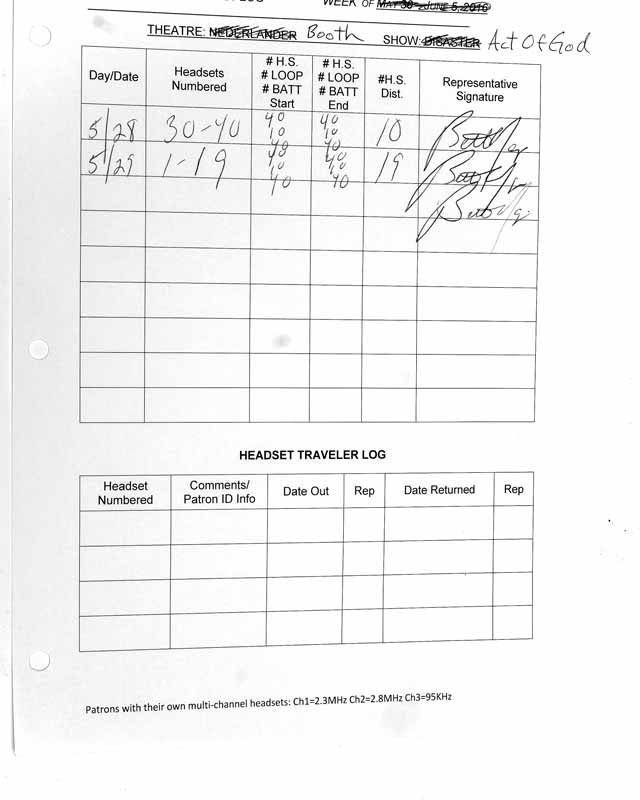 WEEK OF MAY 30 - JUNE 5, 2016
THEATRE: NEDERLANDER Booth SHOW: DISASTER Act Of God
Day/Date
Headsets
Numbered
# H.S.
# LOOP
# BATT
Start
# H.S.
# LOOP
# BATT
End
#H.S.
Dist.
Representative
Signature
5/28 30-40 40 10 40 40 10 40 10
5/29 1-19 40 10 40 40 10 40 19
HEADSET TRAVELER LOG
Headset
Numbered
Comments/
Patron ID Info
Date Out
Rep
Date Returned
Rep
Patrons with their own multi-channel headsets: Ch1=2.3MHz Ch2=2.8MHz Ch3=95KHz